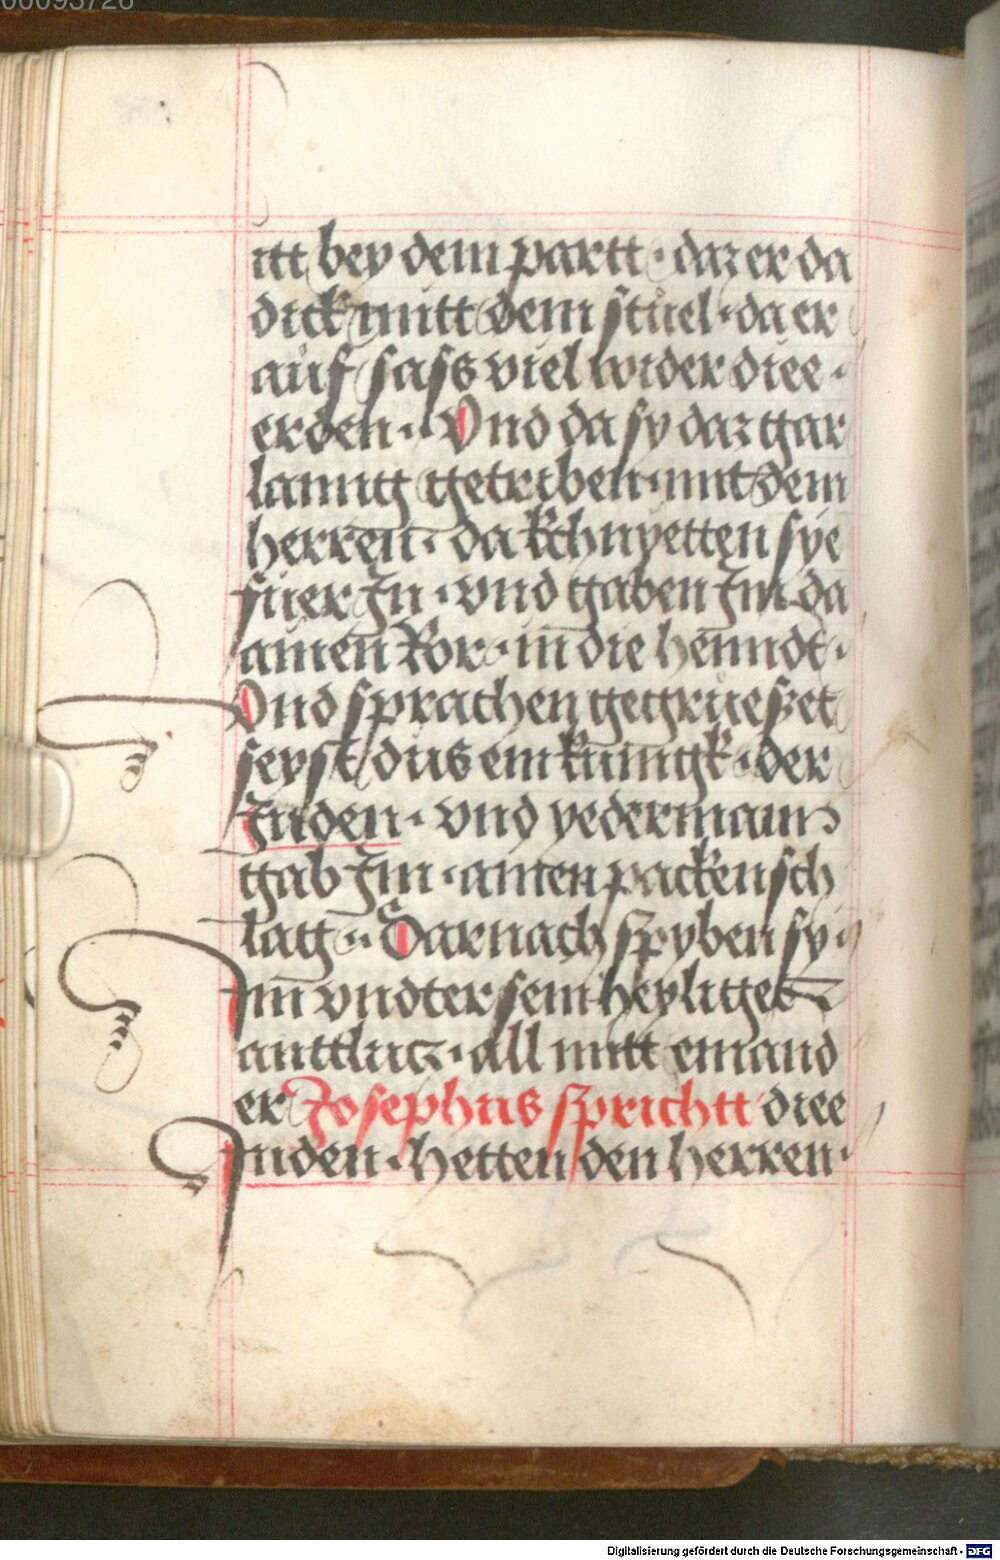 00093726
itt bey dem partt · daz er da
dick mitt dem stuel · da er
auf sass viel wider diee ·
erden · Vnd da sy daz gar
lanng getriben · mit dem
herren · da kchnyetten sye
fuer In · vnd gaben Im da
ainen Ror · in die henndt ·
Vnd sprachen gegrueszet
seyst dus ein kunigk · der
Juden · vnd yederman
gab Im · ainen packensch
lag · Darnach spyben sy
Im vndter sein heyliges
anttlucz · all mitt einand
er Josephus sprichtt diee
Juden · hetten den herren ·
Digitalisierung gefördert durch die Deutsche Forschungsgemeinschaft - DFG